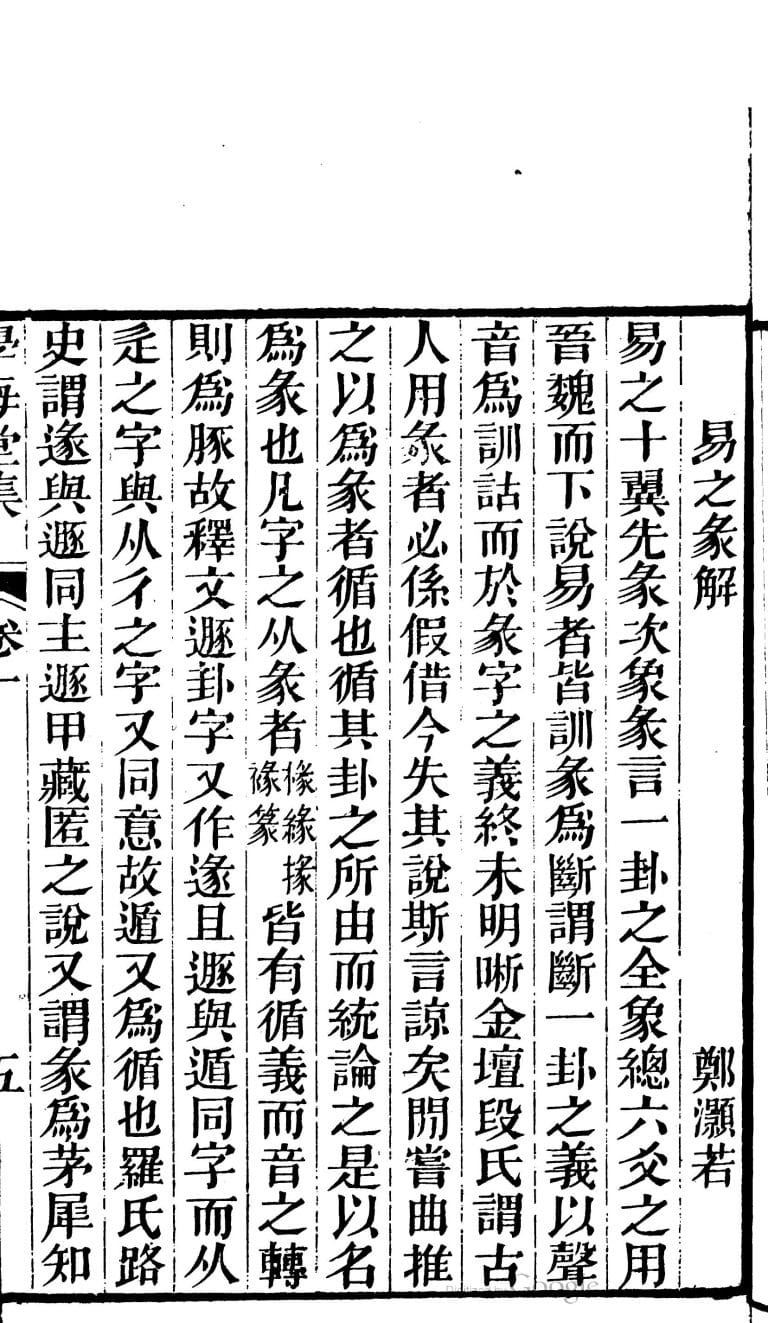 易之彖解　鄭灝若
易之十翼先彖次象彖言一卦之全象總六爻之用
晉魏而下說易者皆訓彖爲斷謂斷一卦之義以聲
音爲訓詁而於彖字之義終未明晣金壇段氏謂古
人用彖者必係假借今失其說斯言諒矣閒嘗曲推
之以爲彖者循也循其卦之所由而統論之是以名
爲彖也凡字之从彖者椽緣掾褖篆皆有循義而音之轉
則爲豚故釋文遯卦字又作遂且遯與遁同字而从
辵之字與从彳之字又同意故遁又爲循也羅氏路
史謂遂與遯同主遯甲藏匿之說又謂彖爲茅犀知
學海堂集　卷一　五
Google